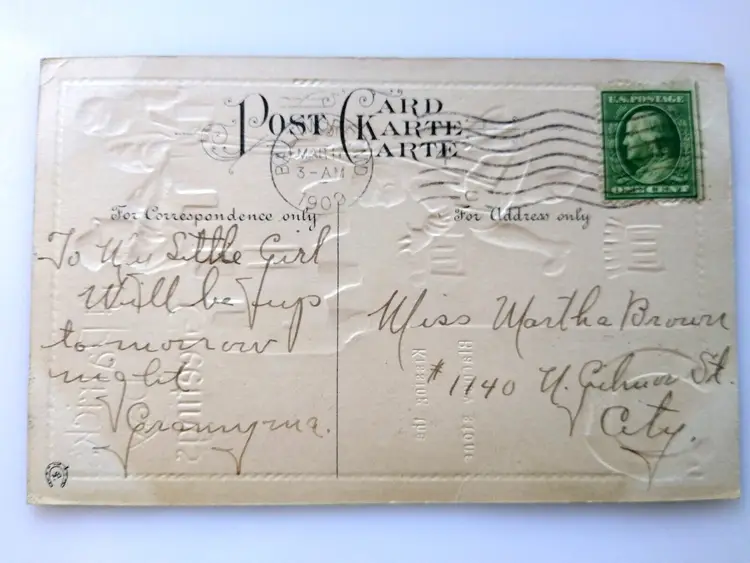 POST CARD
KARTE
CARTE
U.S. POSTAGE
1 CENT
3-AM
1909
For Correspondence only
For Address only
To My Little Girl
Will be up
to-morrow
night
Grannyma.
Miss Martha Brown
# 1740 N. Gilmor St.
City.